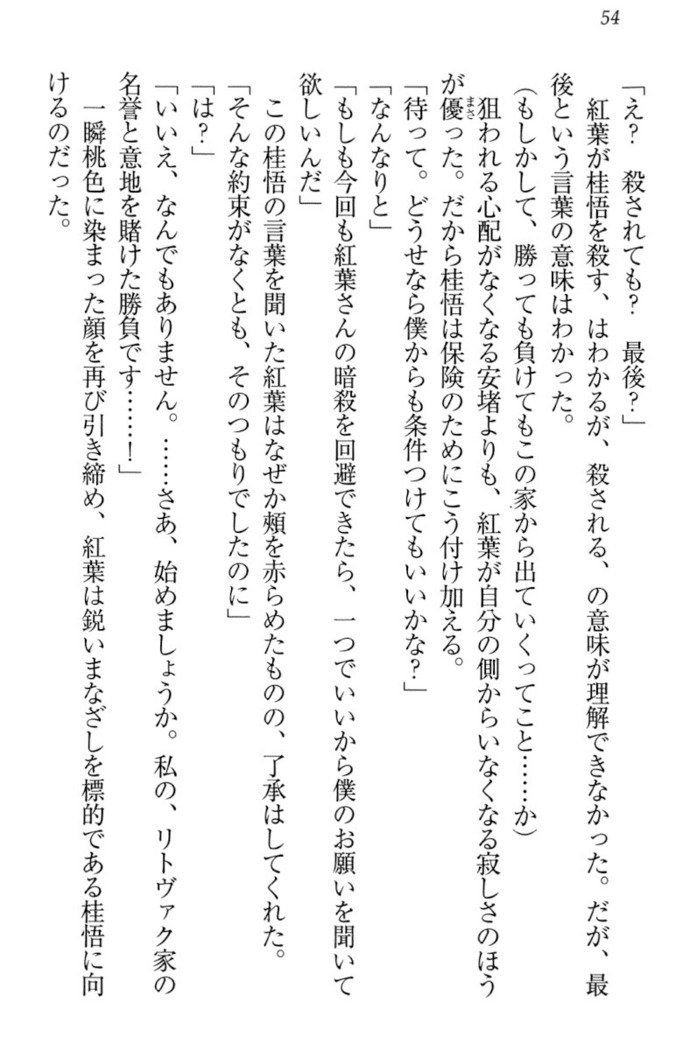 54
「え？　殺されても？　最後？」
　紅葉が桂悟を殺す、はわかるが、殺される、の意味が理解できなかった。だが、最
後という言葉の意味はわかった。
（もしかして、勝っても負けてもこの家から出ていくってこと……か）
　狙われる心配がなくなる安堵よりも、紅葉が自分の側からいなくなる寂しさのほう
が優まさった。だから桂悟は保険のためにこう付け加える。
「待って。どうせなら僕からも条件つけてもいいかな？」
「なんなりと」
「もしも今回も紅葉さんの暗殺を回避できたら、一つでいいから僕のお願いを聞いて
欲しいんだ」
　この桂悟の言葉を聞いた紅葉はなぜか頬を赤らめたものの、了承はしてくれた。
「そんな約束がなくとも、そのつもりでしたのに」
「は？」
「いいえ、なんでもありません。……さあ、始めましょうか。私の、リトヴァク家の
名誉と意地を賭けた勝負です……！」
　一瞬桃色に染まった顔を再び引き締め、紅葉は鋭いまなざしを標的である桂悟に向
けるのだった。